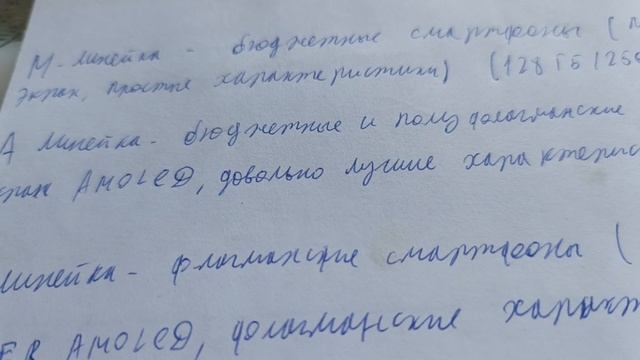 М-линейка - бюджетные смартфоны (
экран, простые характеристики) (128 ГБ / 256
А линейка - бюджетные и полуфлагманские
AMOLED, довольно лучшие характерис
линейка - флагманские смартфоны (
ER AMOLED, флагманские характ